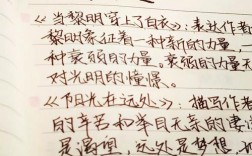 《当黎明穿上了白衣》：表达作者
黎明象征着一种新的力量，
种衰弱的力量。衰弱的力量无
对光明的憧憬。
《阳光在远处》：描写作者
的辛苦和举目无亲的凄
是渴望，远处是梦想，